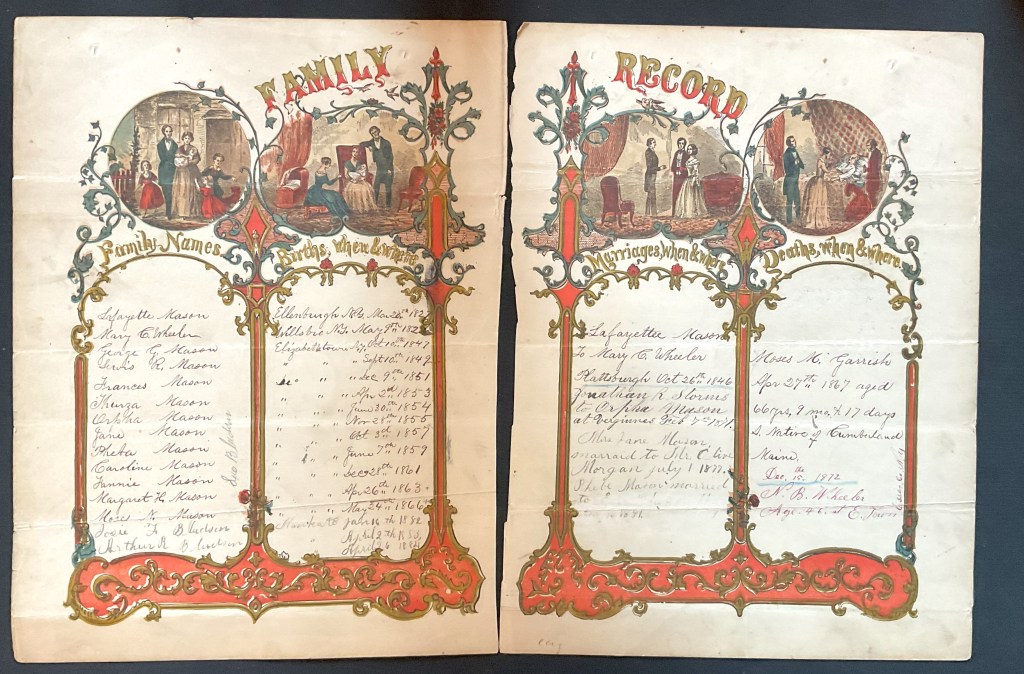 FAMILY RECORD
Family Names.
Births, when & where
Marriages, when & where
Deaths, when & where.
Lafayette Mason
Mary C. Wheeler
George G. Mason
Lewis R. Mason
Frances Mason
Thurza Mason
Orpha Mason
Jane Mason
Pheba Mason
Caroline Mason
Fannie Mason
Margaret H. Mason
Moses Mason
Josie Bludson
Arthur R Bludson
Ellenburgh N.Y. Mar
Willsbro N.Y. May 9th
Elizabethtown N.Y. Oct 10th 1847
" " Sept 10th 1849
" " Dec 9th 1851
" " Apr 2nd 1853
" " June 30th 1854
" " Nov 28th 1855
" " Oct 3rd 1857
" " June 7th 1859
" " Dec 28th 1861
" " Apr 26th 1863
" " May 24th 1866
Jan 18 1882
April 2th
April 26 1884
Lafayettee Mason
To Mary C. Wheeler
Plattsburgh Oct 26th 1846
Jonathan R Storms
to Orpha Mason
at Verginnes Feb
Mrs Jane Mason
marraid to Mr. C
Morgan July 1 1877.
Mason married
to
Moses M. Garrish
Apr 27th 1867 aged
66 yrs, 9 mo & 17 days
Native of Cumberland
Maine.
Dec. 15th 1872
N. B. Wheeler
Age. 45. at E. Town